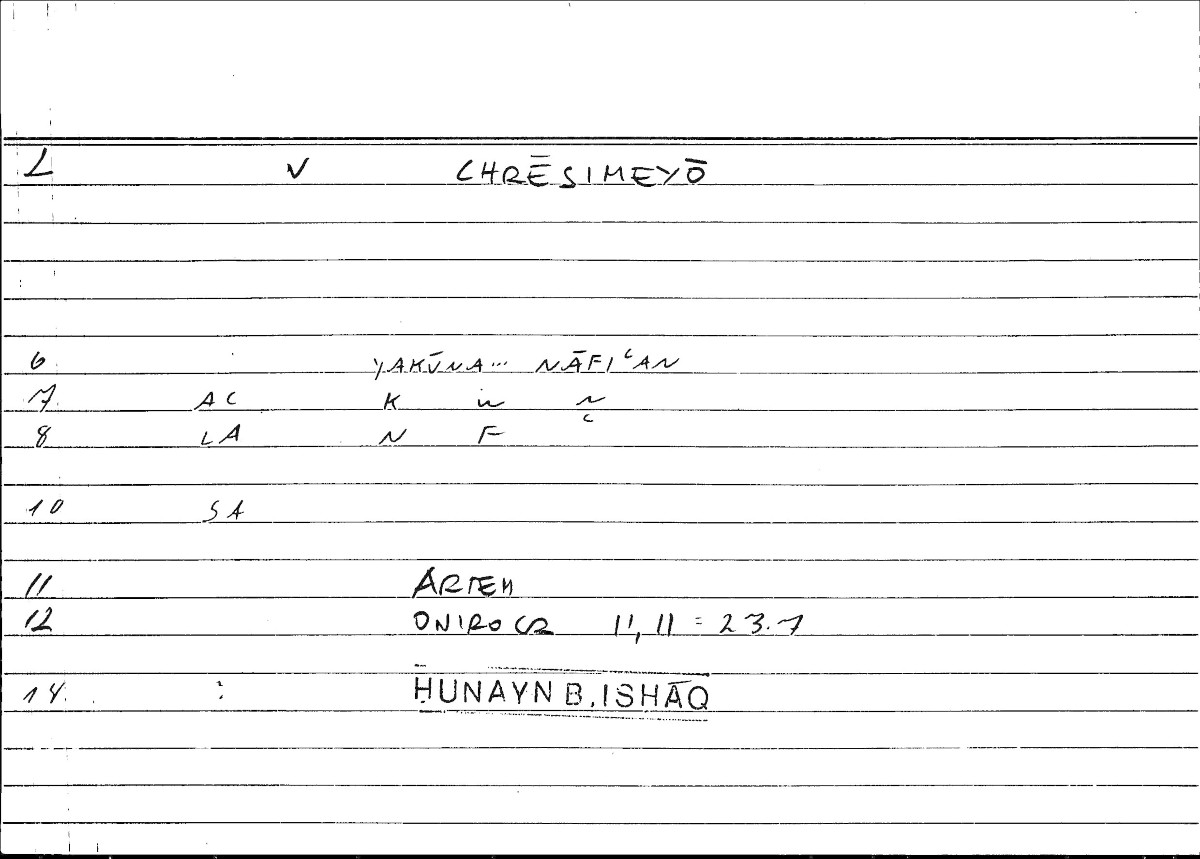 L V CHRĒSIMEYŌ
6 YAKŪNA... NĀFIʿAN
7 AC K W N
8 LA N F ʿ
10 SA
11 ARTEM
12 ONIROCR 11, 11 = 23.7
14. : ḤUNAYN B. ISḤĀQ